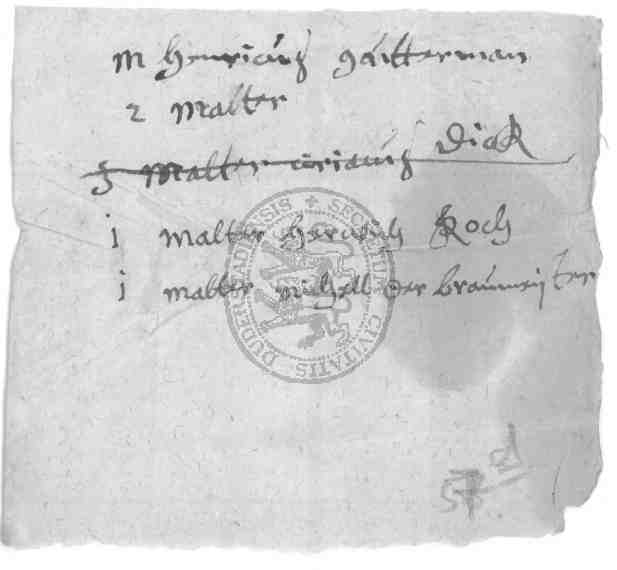 M Henriciuß gutterman
2 Malter
3 Malter ciriacuß Dick
j malter Henrich Koch
j malter michell der braumeister
SECRETUM CIVITATIS DUDERSTADENSIS
57